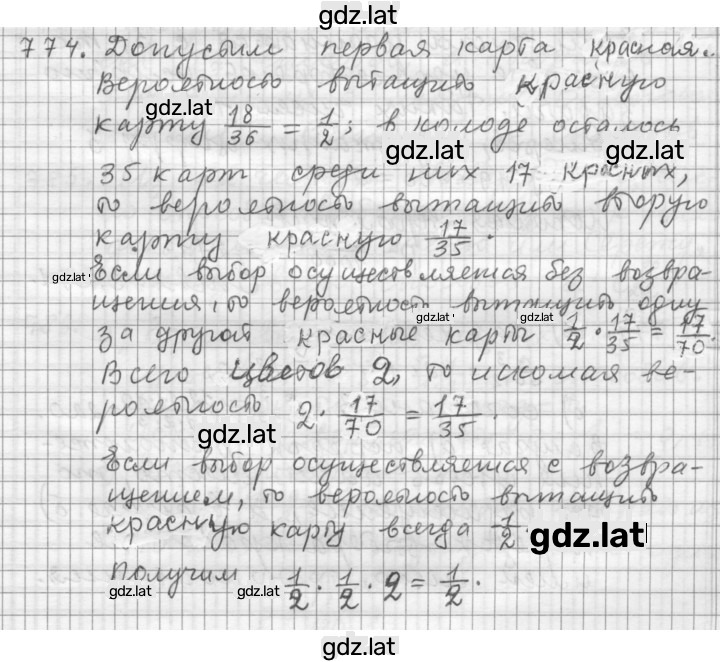 gdz.lat
774. Допустим первая карта красная.
Вероятность вытащить красную
gdz.lat
карту 18/36 = 1/2; в колоде осталось
gdz.lat gdz.lat
35 карт среди них 17 красных,
то вероятность вытащить вторую
карту красную 17/35.
gdz.lat Если выбор осуществляется без возвра-
щения, то вероятность вытащить одну
gdz.lat gdz.lat
за другой красные карты 1/2 · 17/35 = 17/70.
Всего цветов 2, то искомая ве-
роятность 2 · 17/70 = 17/35.
gdz.lat
Если выбор осуществляется с возвра-
щением, то вероятность вытащить
красную карту всегда 1/2.
gdz.lat
Получим 1/2 · 1/2 · 2 = 1/2.
gdz.lat gdz.lat gdz.lat
gdz.lat